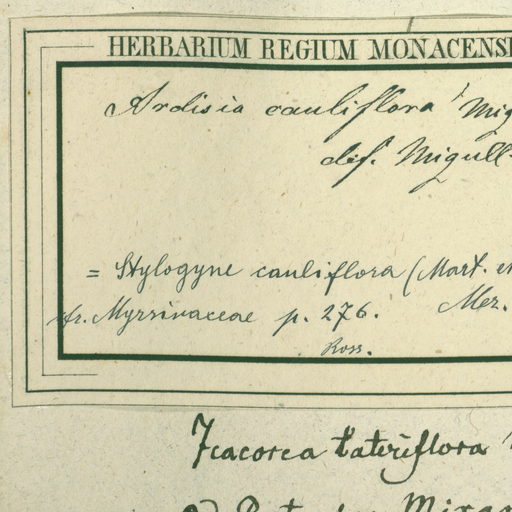 HERBARIUM REGIUM MONACENS
Ardisia cauliflora Mig
det. Migull
= Stylogyne cauliflora (Mart. et
fr. Myrsinaceae p. 276. Mez.
Ross.
Icacorea lateriflora